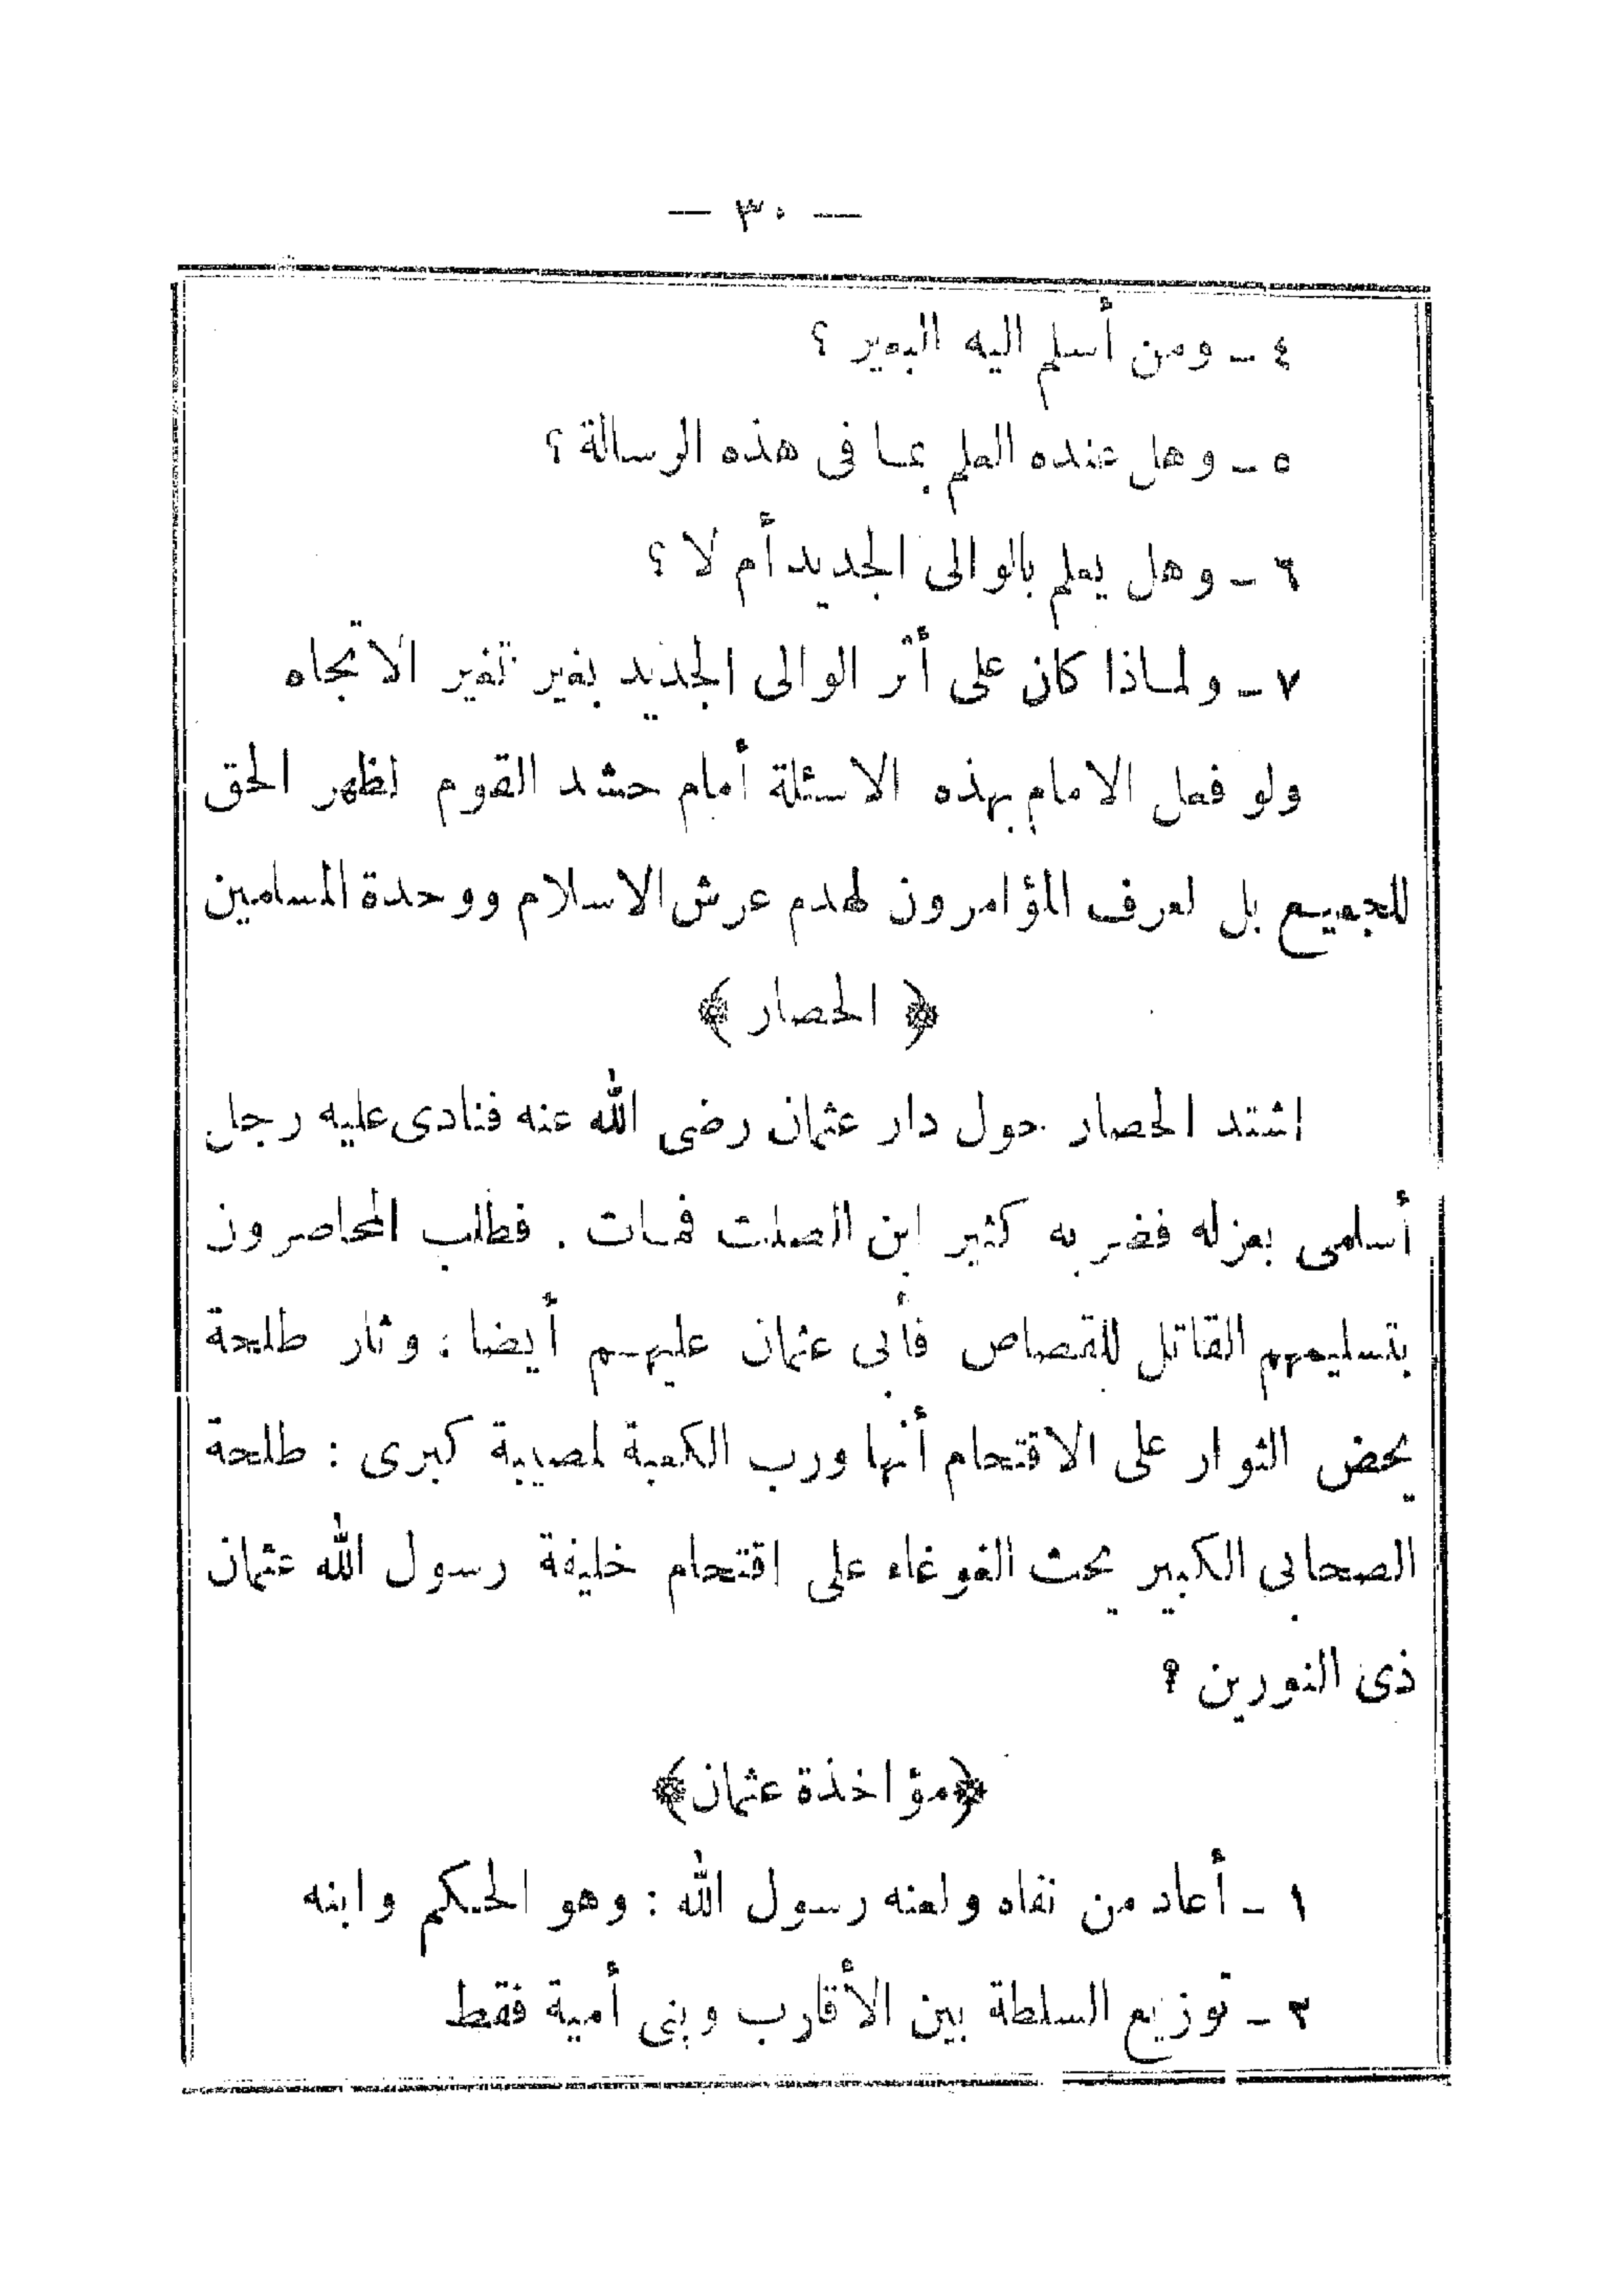 — ٣٠ —
٤ ـ ومن أسلم اليه البعير ؟
٥ ـ وهل عنده العلم بما فى هذه الرسالة ؟
٦ ـ وهل يعلم بالوالى الجديد أم لا ؟
٧ ـ ولماذا كان على أثر الوالى الجديد بغير تغير الاتجاه
ولو فعل الامام بهذه الاسئلة أمام حشد القوم لظهر الحق
للجميع بل لعرف المؤامرون لهدم عرش الاسلام ووحدة المسلمين
﴿ الحصار ﴾
اشتد الحصار حول دار عثمان رضى الله عنه فنادى عليه رجل
أسلمى بعزله فضربه كثير ابن الصلت فمات . فطلب المحاصرون
بتسليمهم القاتل للقصاص فأبى عثمان عليهم أيضا : وثار طلحة
يحض الثوار على الاقتحام أنها ورب الكعبة لمصيبة كبرى : طلحة
الصحابى الكبير يحث الغوغاء على اقتحام خليفة رسول الله عثمان
ذى النورين ؟
﴿مؤاخذة عثمان﴾
١ ـ أعاد من نفاه ولعنه رسول الله : وهو الحكم وابنه
٢ ـ توزيع السلطة بين الأقارب وبنى أمية فقط